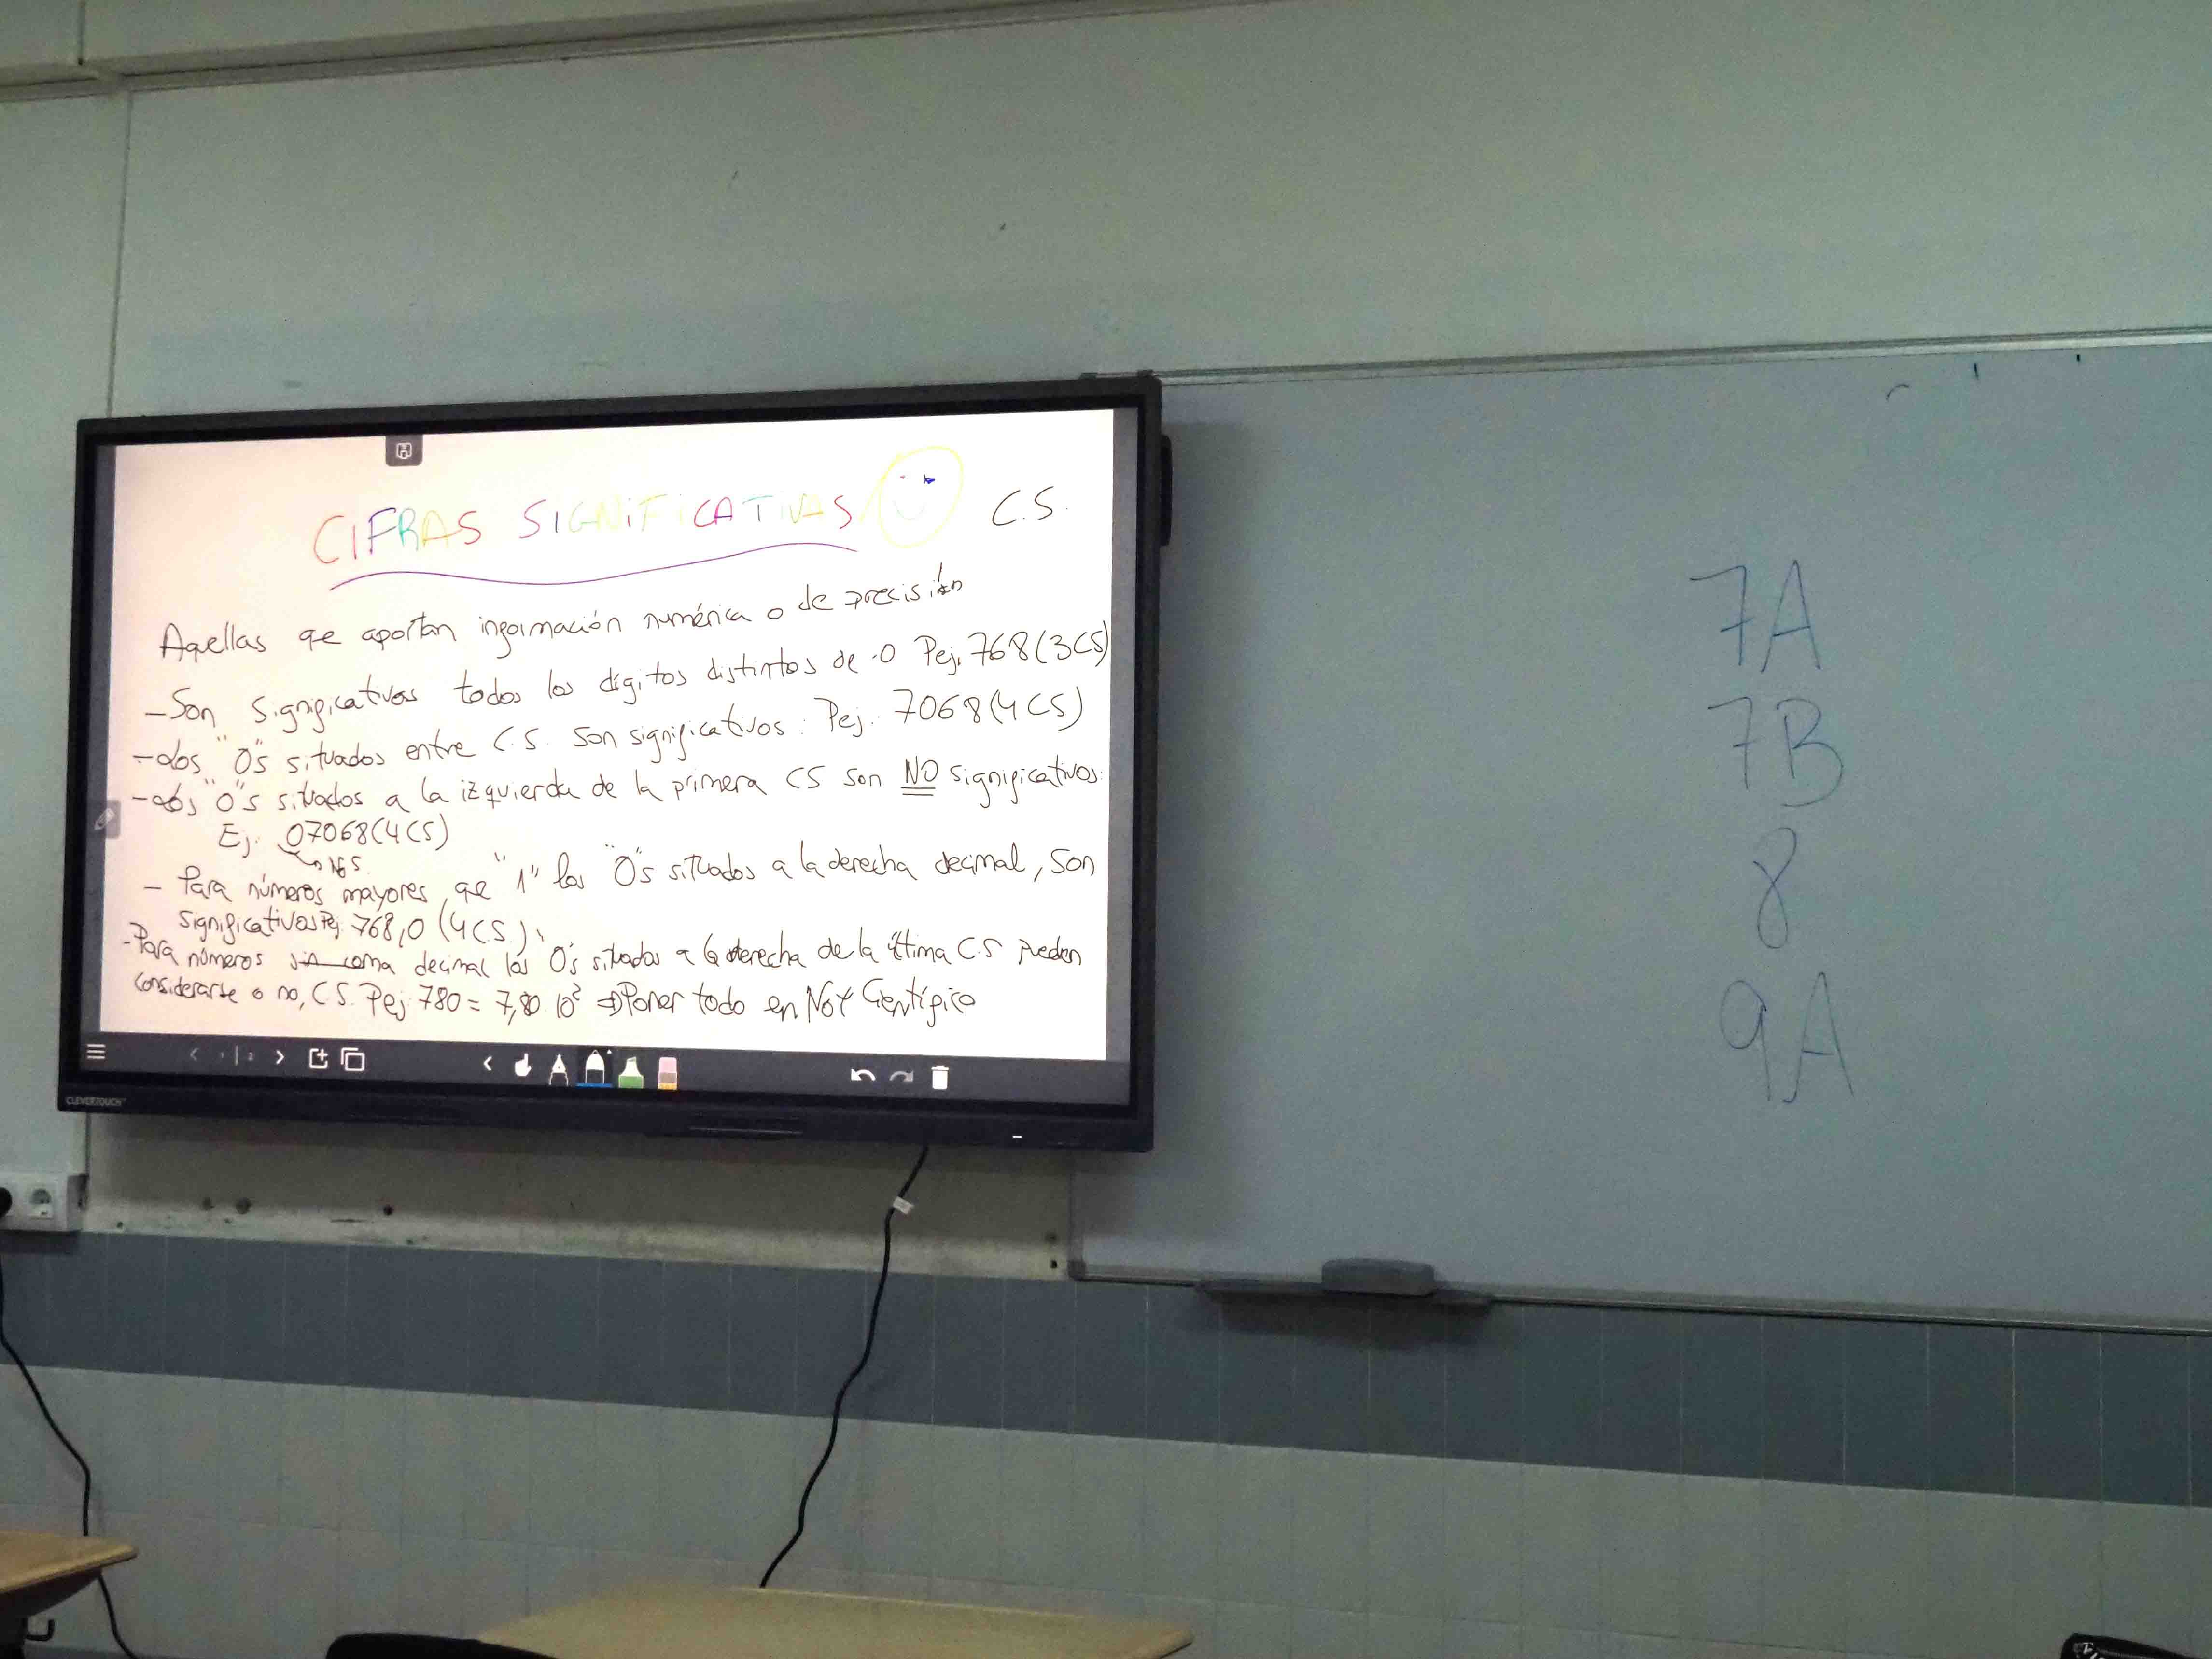 CIFRAS SIGNIFICATIVAS C.S.
Aquellas que aportan información numérica o de precisión
- Son significativos todos los dígitos distintos de 0 Pej. 768 (3CS)
- Los "0"s situados entre C.S. son significativos: Pej: 7068 (4 CS)
- Los "0"s situados a la izquierda de la primera CS son NO significativos:
Ej: 07068 (4CS)
- Para números mayores que "1" los "0"s situados a la derecha decimal, son
significativos Pej 768,0 (4CS.)
- Para números sin coma decimal los 0's situados a la derecha de la última C.S pueden
considerarse o no, C.S. Pej 780 = 7,80 10² ⇒ Poner todo en Not Científica
CLEVERTOUCH
7A
7B
8
9A